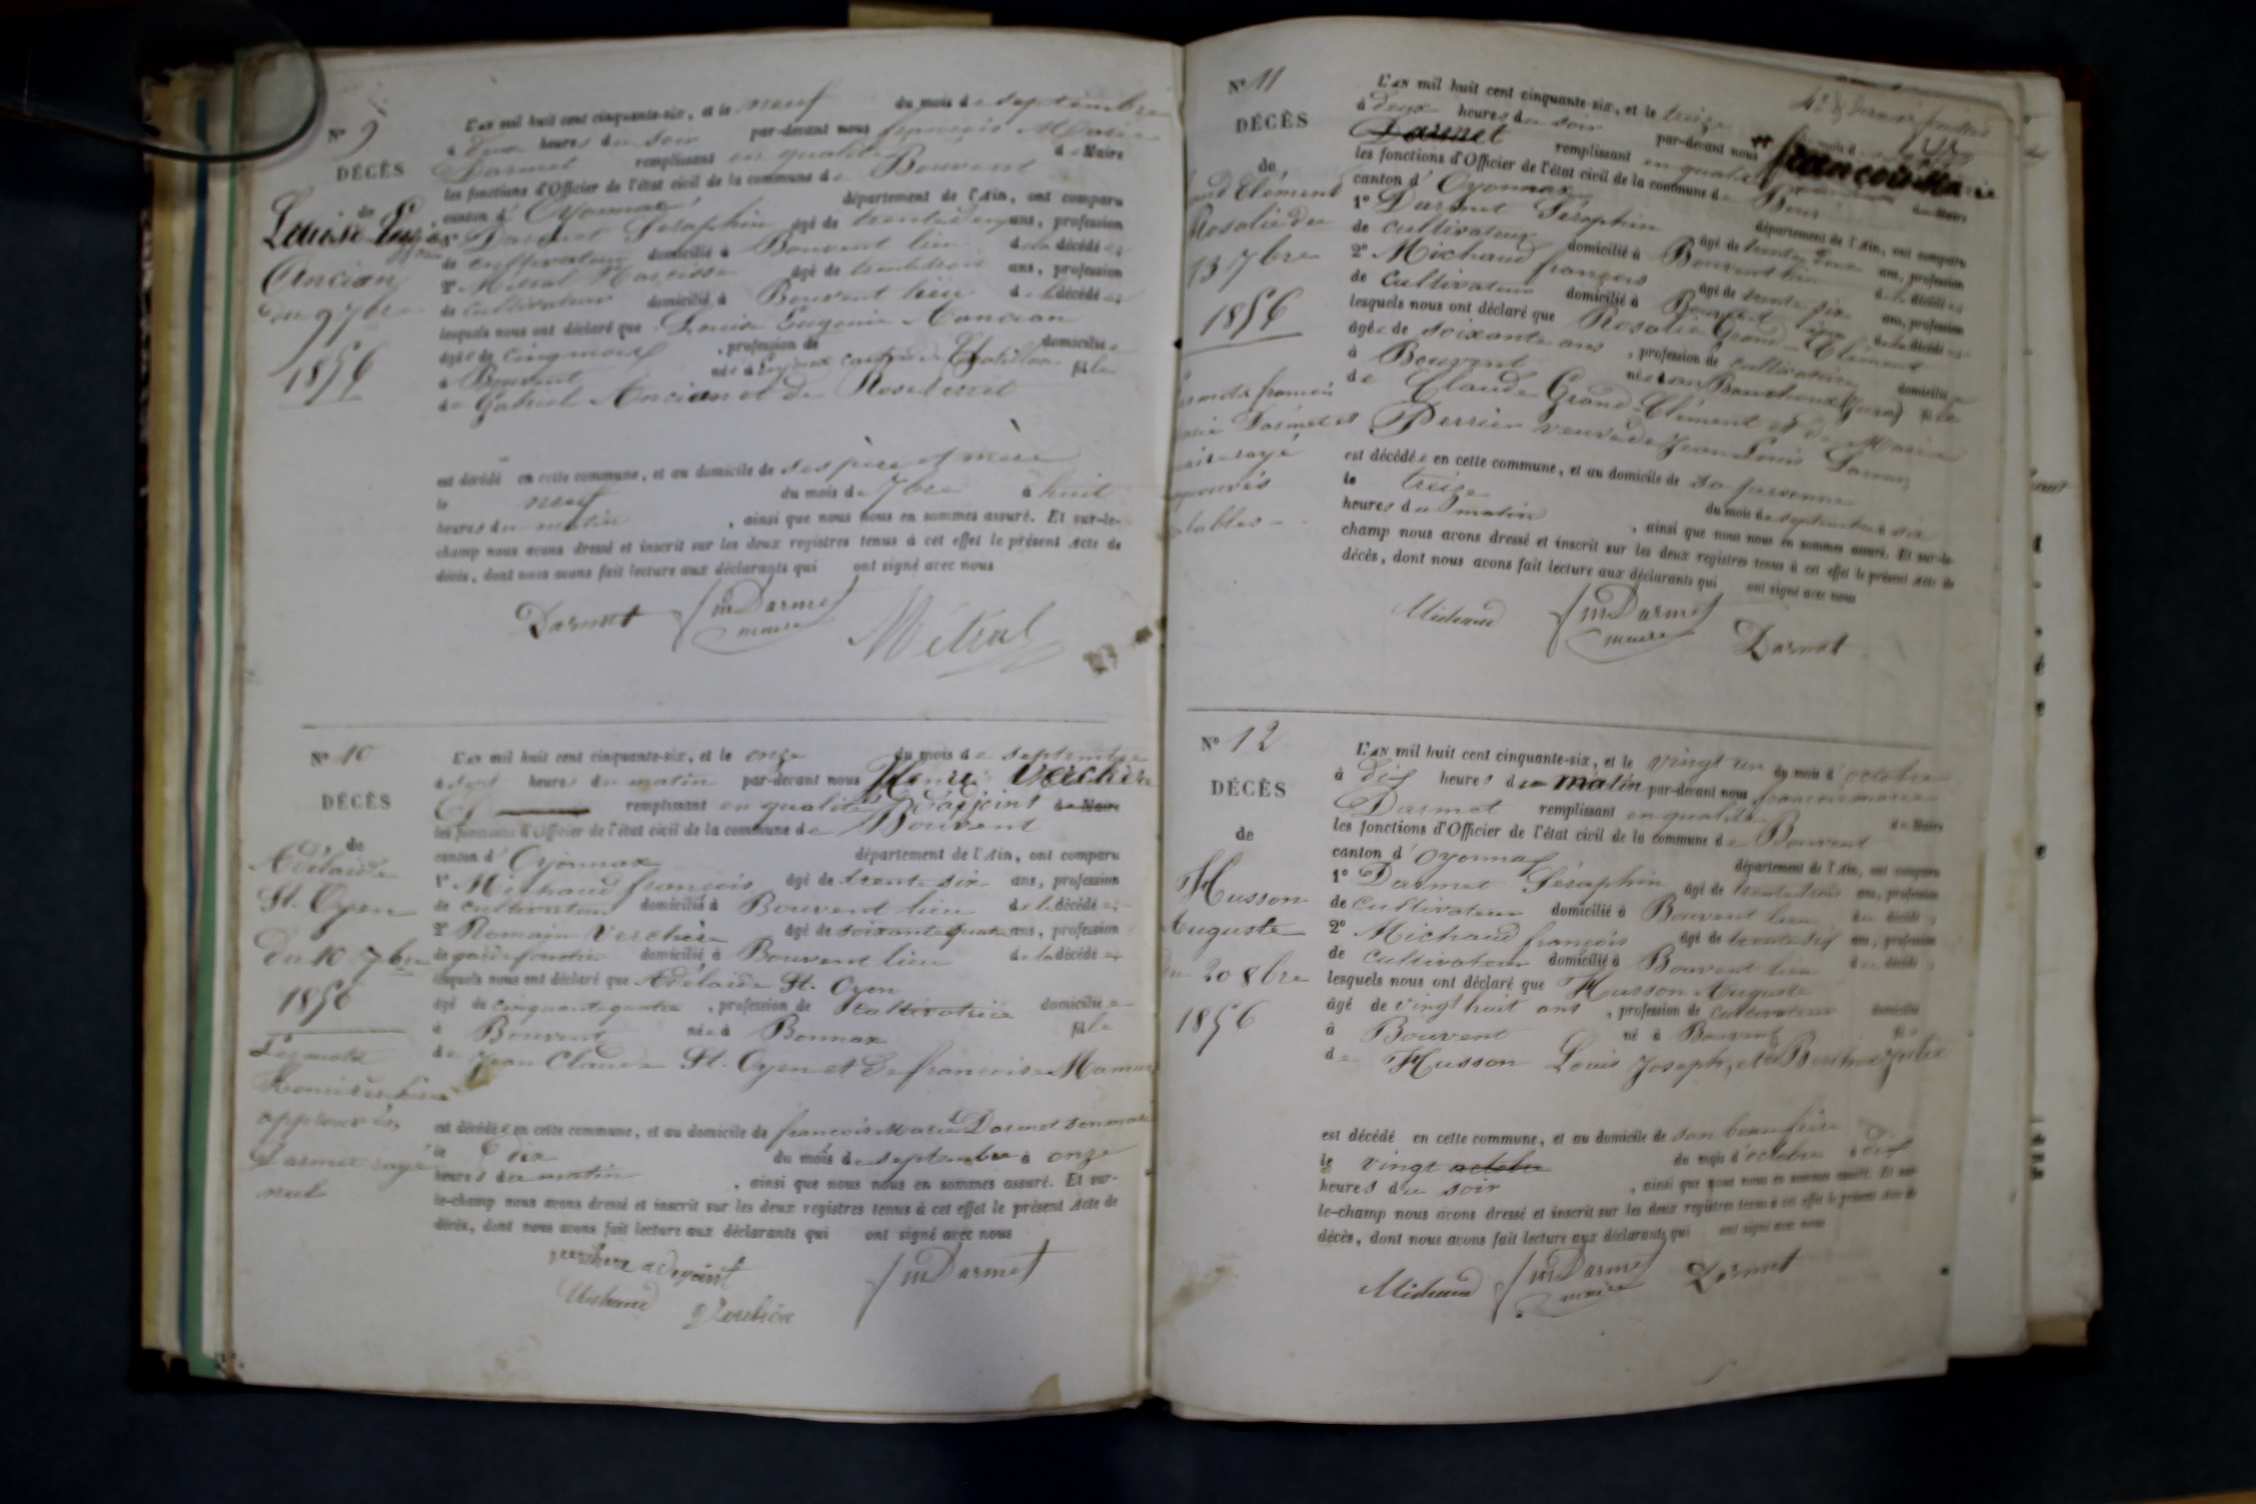 N° 9
DÉCÈS
de
Louise Eugénie
Ancian
du 9 7bre
1856
L'an mil huit cent cinquante-six, et le neuf du mois de septembre
à deux heures du soir par-devant nous françois Marie
Darmet remplissant en qualité de Maire
les fonctions d'Officier de l'état civil de la commune de Bouvent
canton d'Oyonnax département de l'Ain, ont comparu
1° Darmet Séraphin âgé de trente deux ans, profession
de cultivateur domicilié à Bouvent lieu de la décédée
2° Métral Narcisse âgé de trente trois ans, profession
de cultivateur domicilié à Bouvent lieu de la décédée
lesquels nous ont déclaré que Louise Eugénie Ancian
âgée de cinq mois, profession de domiciliée
à Bouvent née à canton de Chatillon fille
de Gabriel Ancian et de Rose
est décédé en cette commune, et au domicile de ses père et mère
le neuf du mois de 7bre à huit
heures du matin, ainsi que nous nous en sommes assuré. Et sur-le-
champ nous avons dressé et inscrit sur les deux registres tenus à cet effet le présent Acte de
décès, dont nous avons fait lecture aux déclarants qui ont signé avec nous
Darmet fm Darmet
maire
Métral
N° 10
DÉCÈS
de
Adélaïde
St. Oyen
du 10 7bre
1856
Les mots
approuvés
Darmet rayé
nul
L'an mil huit cent cinquante-six, et le onze du mois de septembre
à sept heures du matin par-devant nous Verchère
remplissant en qualité d'adjoint de Maire
les fonctions d'Officier de l'état civil de la commune de Bouvent
canton d'Oyonnax département de l'Ain, ont comparu
1° Michaud françois âgé de trente six ans, profession
de cultivateur domicilié à Bouvent lieu de la décédée
2° Romain Verchère âgé de soixante quatre ans, profession
de garde forestier domicilié à Bouvent lieu de la décédée
lesquels nous ont déclaré que Adélaïde St. Oyen
âgé de cinquante quatre, profession de Cultivatrice domiciliée
à Bouvent née à Bonnax fille
de Jean Claude St. Oyen et de françoise
est décédée en cette commune, et au domicile de françois Marie Darmet son mari
le dix du mois de septembre à onze
heures du matin, ainsi que nous nous en sommes assuré. Et sur-
le-champ nous avons dressé et inscrit sur les deux registres tenus à cet effet le présent Acte de
décès, dont nous avons fait lecture aux déclarants qui ont signé avec nous
verchere adjoint
Michaud Verchère
fm Darmet
N° 11
DÉCÈS
de
Grand Clément
Rosalie du
13 7bre
1856
mots françois
Marie Darmet et
rayé
approuvés
L'an mil huit cent cinquante-six, et le treize
à deux heures du soir par-devant nous françois Marie
Darmet remplissant en qualité de Maire
les fonctions d'Officier de l'état civil de la commune de
canton d'Oyonnax département de l'Ain, ont comparu
1° Darmet Séraphin âgé de trente deux ans, profession
de cultivateur domicilié à Bouvent lieu de la décédée
2° Michaud françois âgé de trente six ans, profession
de cultivateur domicilié à Bouvent lieu de la décédée
lesquels nous ont déclaré que Rosalie Grand-Clément
âgée de soixante ans, profession de cultivatrice domiciliée
à Bouvent née (Jura) fille
de Claude Grand-Clément et de Marie
Perrier veuve de Jean Louis
est décédée en cette commune, et au domicile de sa personne
le treize du mois de septembre à six
heures du matin, ainsi que nous nous en sommes assuré. Et sur-le-
champ nous avons dressé et inscrit sur les deux registres tenus à cet effet le présent Acte de
décès, dont nous avons fait lecture aux déclarants qui ont signé avec nous
Michaud fm Darmet
maire
Darmet
N° 12
DÉCÈS
de
Husson
Auguste
du 20 8bre
1856
L'an mil huit cent cinquante-six, et le vingt un du mois d'octobre
à dix heures du matin par-devant nous françois marie
Darmet remplissant en qualité de Maire
les fonctions d'Officier de l'état civil de la commune de Bouvent
canton d'Oyonnax département de l'Ain, ont comparu
1° Darmet Séraphin âgé de trente trois ans, profession
de cultivateur domicilié à Bouvent lieu du décédé
2° Michaud françois âgé de trente six ans, profession
de cultivateur domicilié à Bouvent lieu du décédé
lesquels nous ont déclaré que Husson Auguste
âgé de vingt huit ans, profession de cultivateur domicilié
à Bouvent né à Bouvent fils
de Husson Louis Joseph, et de
est décédé en cette commune, et au domicile de son beau frère
le vingt octobre du mois d'octobre à dix
heures du soir, ainsi que nous nous en sommes assuré. Et sur-
le-champ nous avons dressé et inscrit sur les deux registres tenus à cet effet le présent Acte de
décès, dont nous avons fait lecture aux déclarants qui ont signé avec nous
Michaud fm Darmet
maire
Darmet